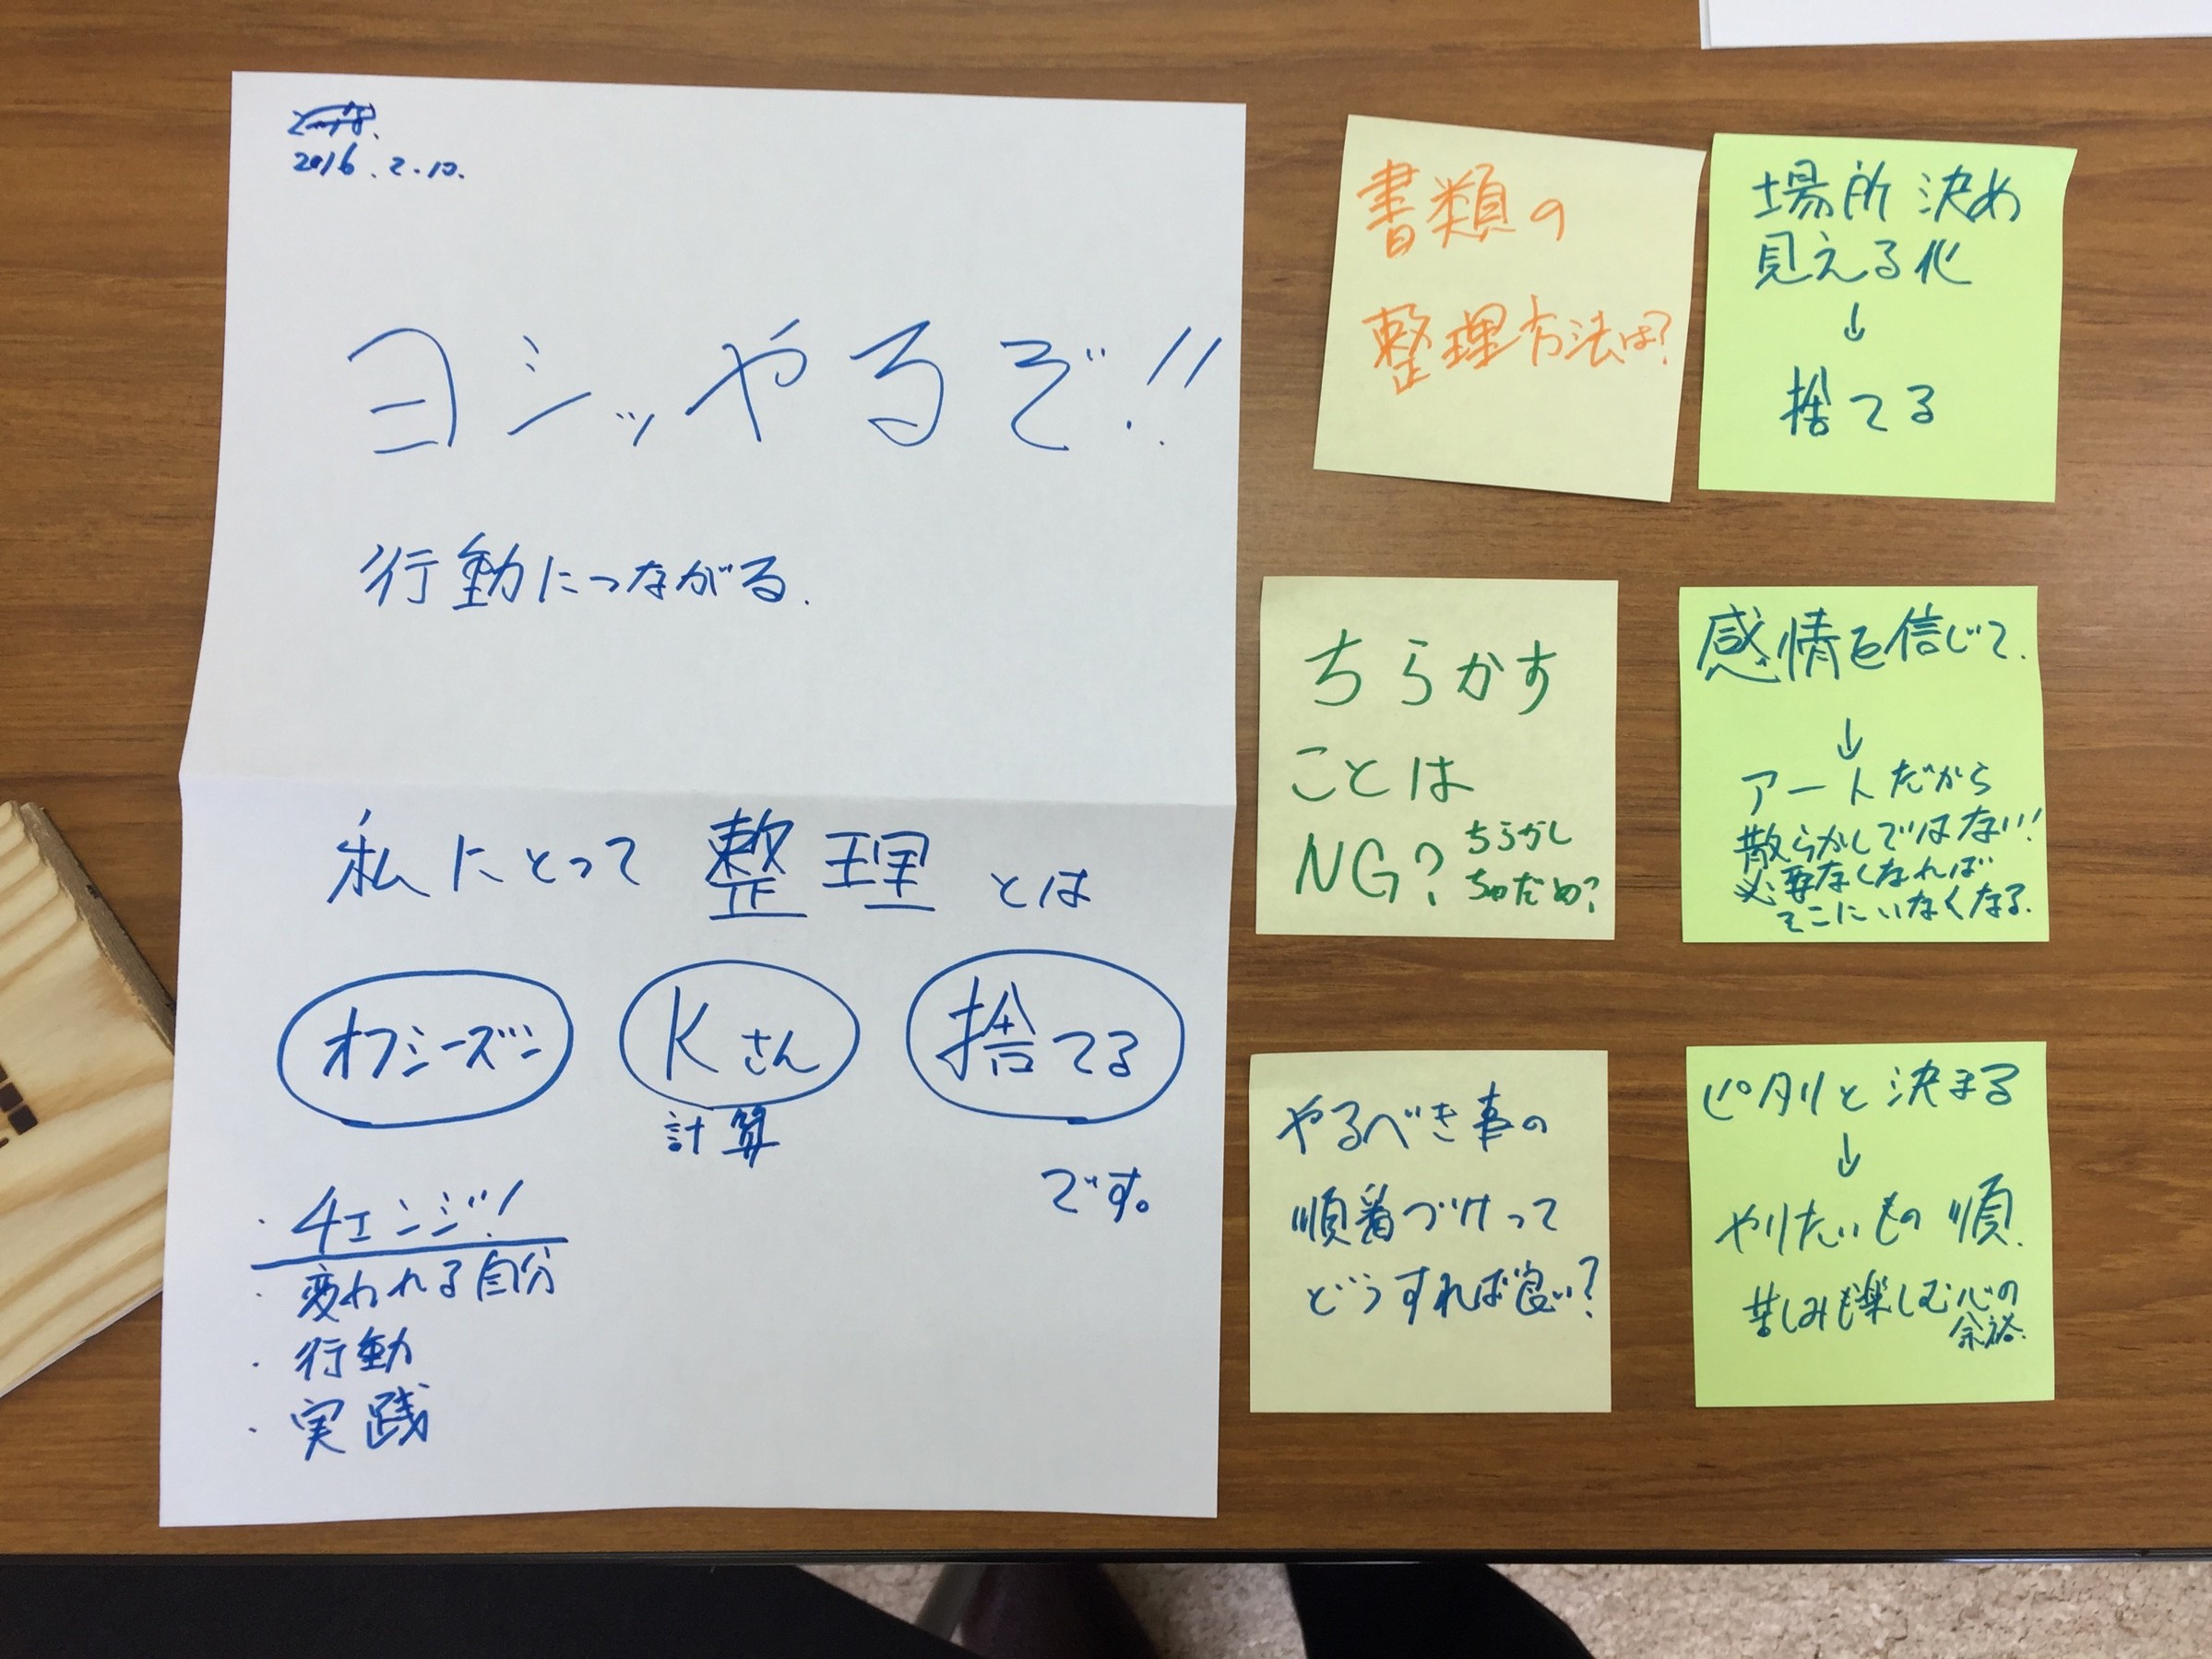 2016.2.10.
ヨシッやるぞ!!
行動につながる.
私にとって 整理 とは
オフシーズン Kさん 捨てる
計算
です。
・チェンジ!
・変われる自分
・行動
・実践
書類の
整理方法は?
場所 決め
見える化
↓
捨てる
ちらかす
ことは
NG? ちらかし
ちゃだめ?
感情を信じて.
↓
アートだから
散らかしではない!
必要なくなれば
そこにいなくなる.
やるべき事の
順番づけって
どうすれば良い?
ピタリと 決まる
↓
やりたいもの 順.
苦しみも楽しむ心の
余裕.